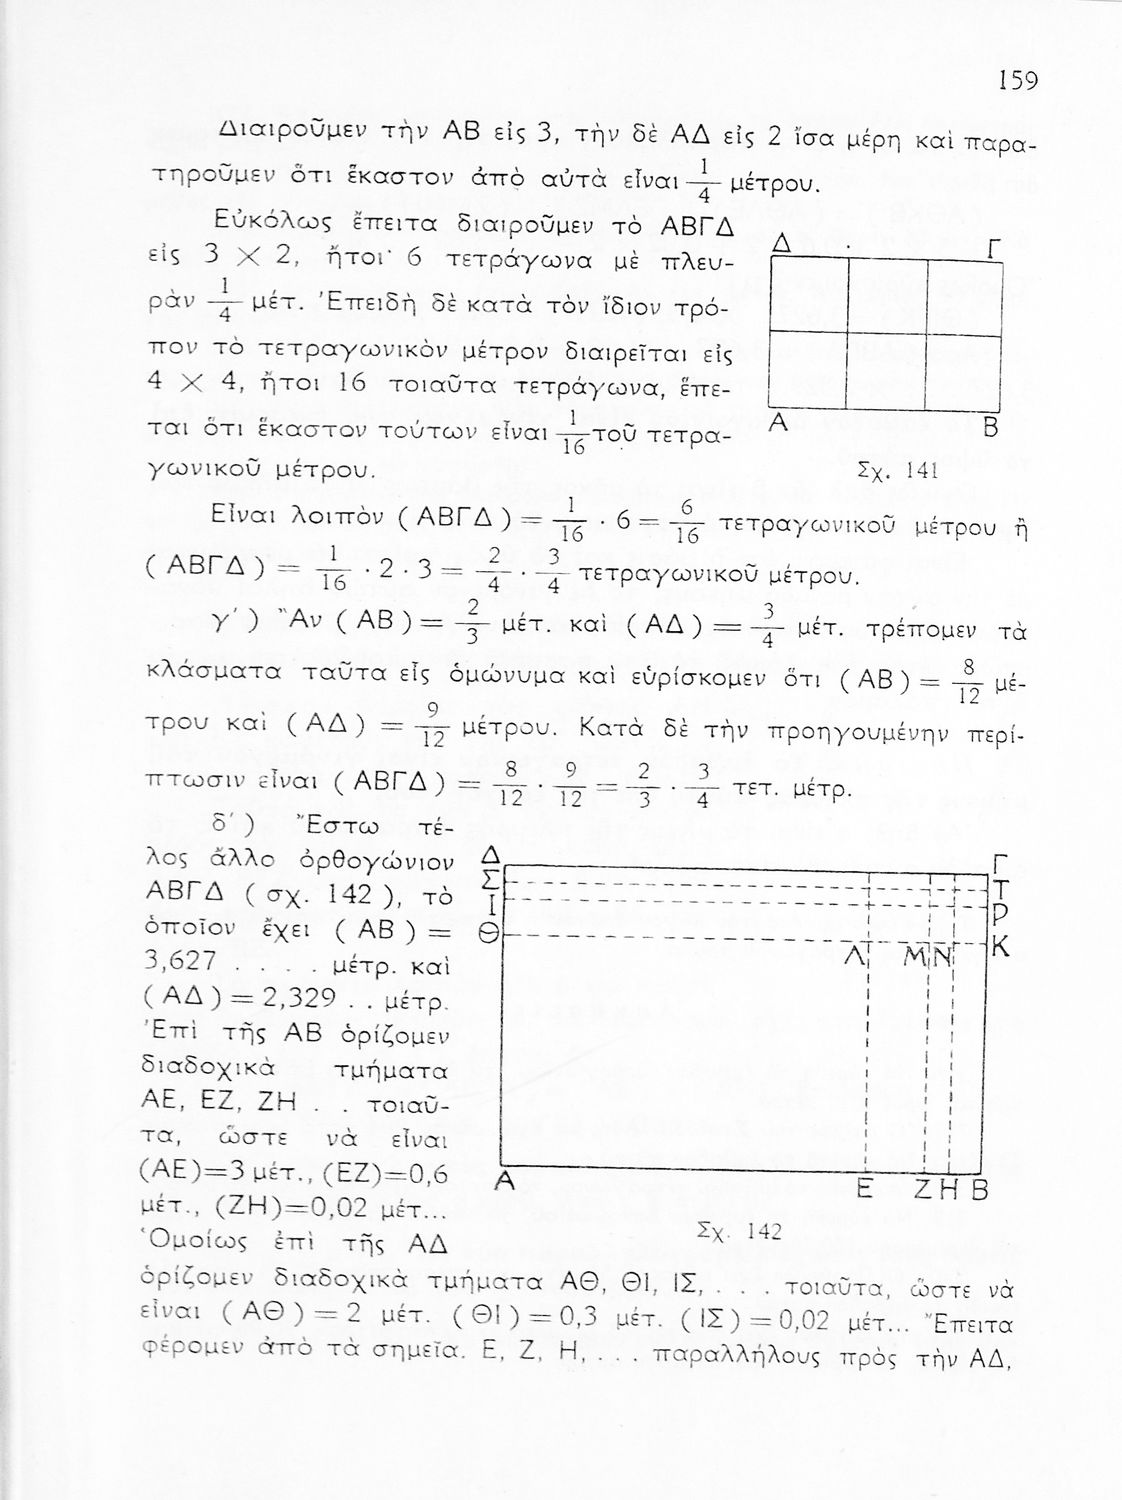 159
Διαιροῦμεν τὴν ΑΒ εἰς 3, τὴν δὲ ΑΔ εἰς 2 ἴσα μέρη καὶ παρα-
τηροῦμεν ὅτι ἕκαστον ἀπὸ αὐτὰ εἶναι 1/4 μέτρου.
Εὐκόλως ἔπειτα διαιροῦμεν τὸ ΑΒΓΔ
εἰς 3 × 2, ἤτοι 6 τετράγωνα μὲ πλευ-
ρὰν 1/4 μέτ. Ἐπειδὴ δὲ κατὰ τὸν ἴδιον τρό-
πον τὸ τετραγωνικὸν μέτρον διαιρεῖται εἰς
4 × 4, ἤτοι 16 τοιαῦτα τετράγωνα, ἕπε-
ται ὅτι ἕκαστον τούτων εἶναι 1/16 τοῦ τετρα-
γωνικοῦ μέτρου.
Δ Γ
Α Β
Σχ. 141
Εἶναι λοιπὸν ( ΑΒΓΔ ) = 1/16 · 6 = 6/16 τετραγωνικοῦ μέτρου ἢ
( ΑΒΓΔ ) = 1/16 · 2 · 3 = 2/4 · 3/4 τετραγωνικοῦ μέτρου.
γ΄ ) Ἂν ( ΑΒ ) = 2/3 μέτ. καὶ ( ΑΔ ) = 3/4 μέτ. τρέπομεν τὰ
κλάσματα ταῦτα εἰς ὁμώνυμα καὶ εὑρίσκομεν ὅτι ( ΑΒ ) = 8/12 μέ-
τρου καὶ ( ΑΔ ) = 9/12 μέτρου. Κατὰ δὲ τὴν προηγουμένην περί-
πτωσιν εἶναι ( ΑΒΓΔ ) = 8/12 · 9/12 = 2/3 · 3/4 τετ. μέτρ.
δ΄ ) Ἔστω τέ-
λος ἄλλο ὀρθογώνιον
ΑΒΓΔ ( σχ. 142 ), τὸ
ὁποῖον ἔχει ( ΑΒ ) =
3,627 . . . . μέτρ. καὶ
( ΑΔ ) = 2,329 . . μέτρ.
Ἐπὶ τῆς ΑΒ ὁρίζομεν
διαδοχικὰ τμήματα
ΑΕ, ΕΖ, ΖΗ . . τοιαῦ-
τα, ὥστε νὰ εἶναι
(ΑΕ)=3 μέτ., (ΕΖ)=0,6
μέτ., (ΖΗ)=0,02 μέτ...
Ὁμοίως ἐπὶ τῆς ΑΔ
Δ Γ
Σ Τ
Ι Ρ
Θ Κ
Λ Μ Ν
Α Ε Ζ Η Β
Σχ. 142
ὁρίζομεν διαδοχικὰ τμήματα ΑΘ, ΘΙ, ΙΣ, . . . τοιαῦτα, ὥστε νὰ
εἶναι ( ΑΘ ) = 2 μέτ. ( ΘΙ ) = 0,3 μέτ. ( ΙΣ ) = 0,02 μέτ... Ἔπειτα
φέρομεν ἀπὸ τὰ σημεῖα. Ε, Ζ, Η, . . . παραλλήλους πρὸς τὴν ΑΔ,